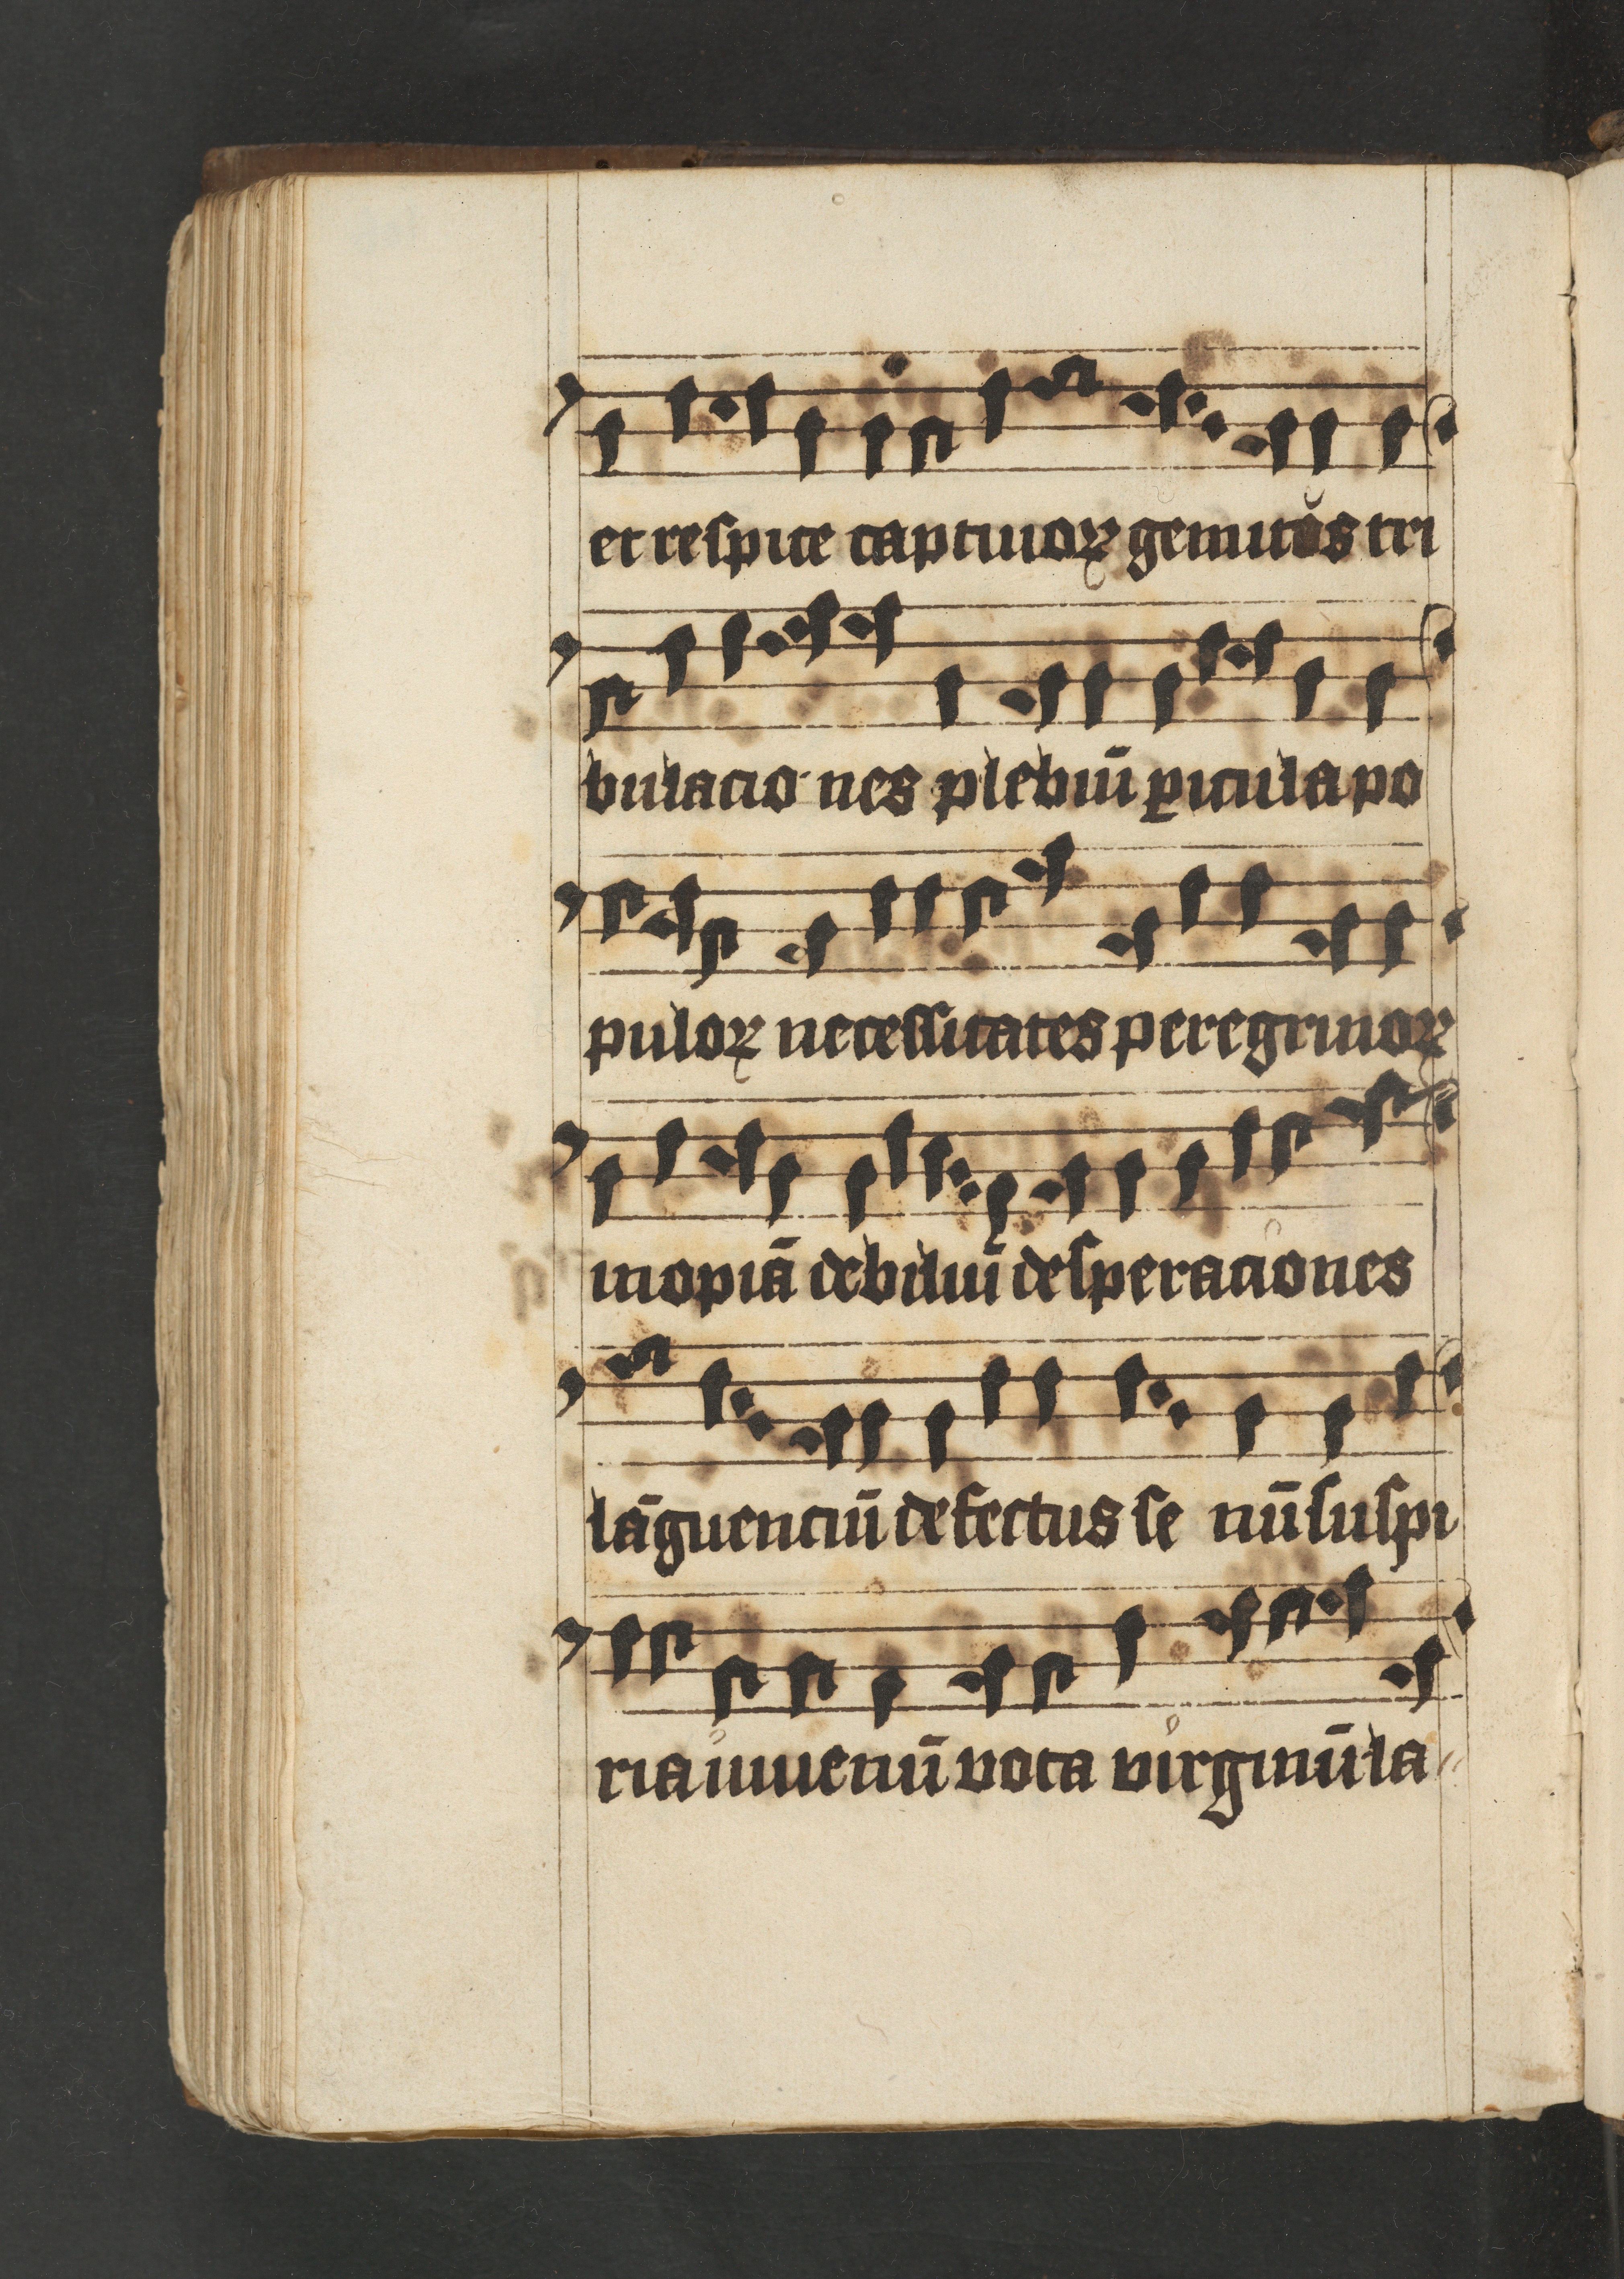 et respice captiuoꝝ gemitus tri
bulacio nes plebiū ꝑicula po
puloꝝ necessitates peregrinoꝝ
inopiā debiliū desperaciones
lāguenciū defectus se nū suspi
ria iuuenū vota virginū la